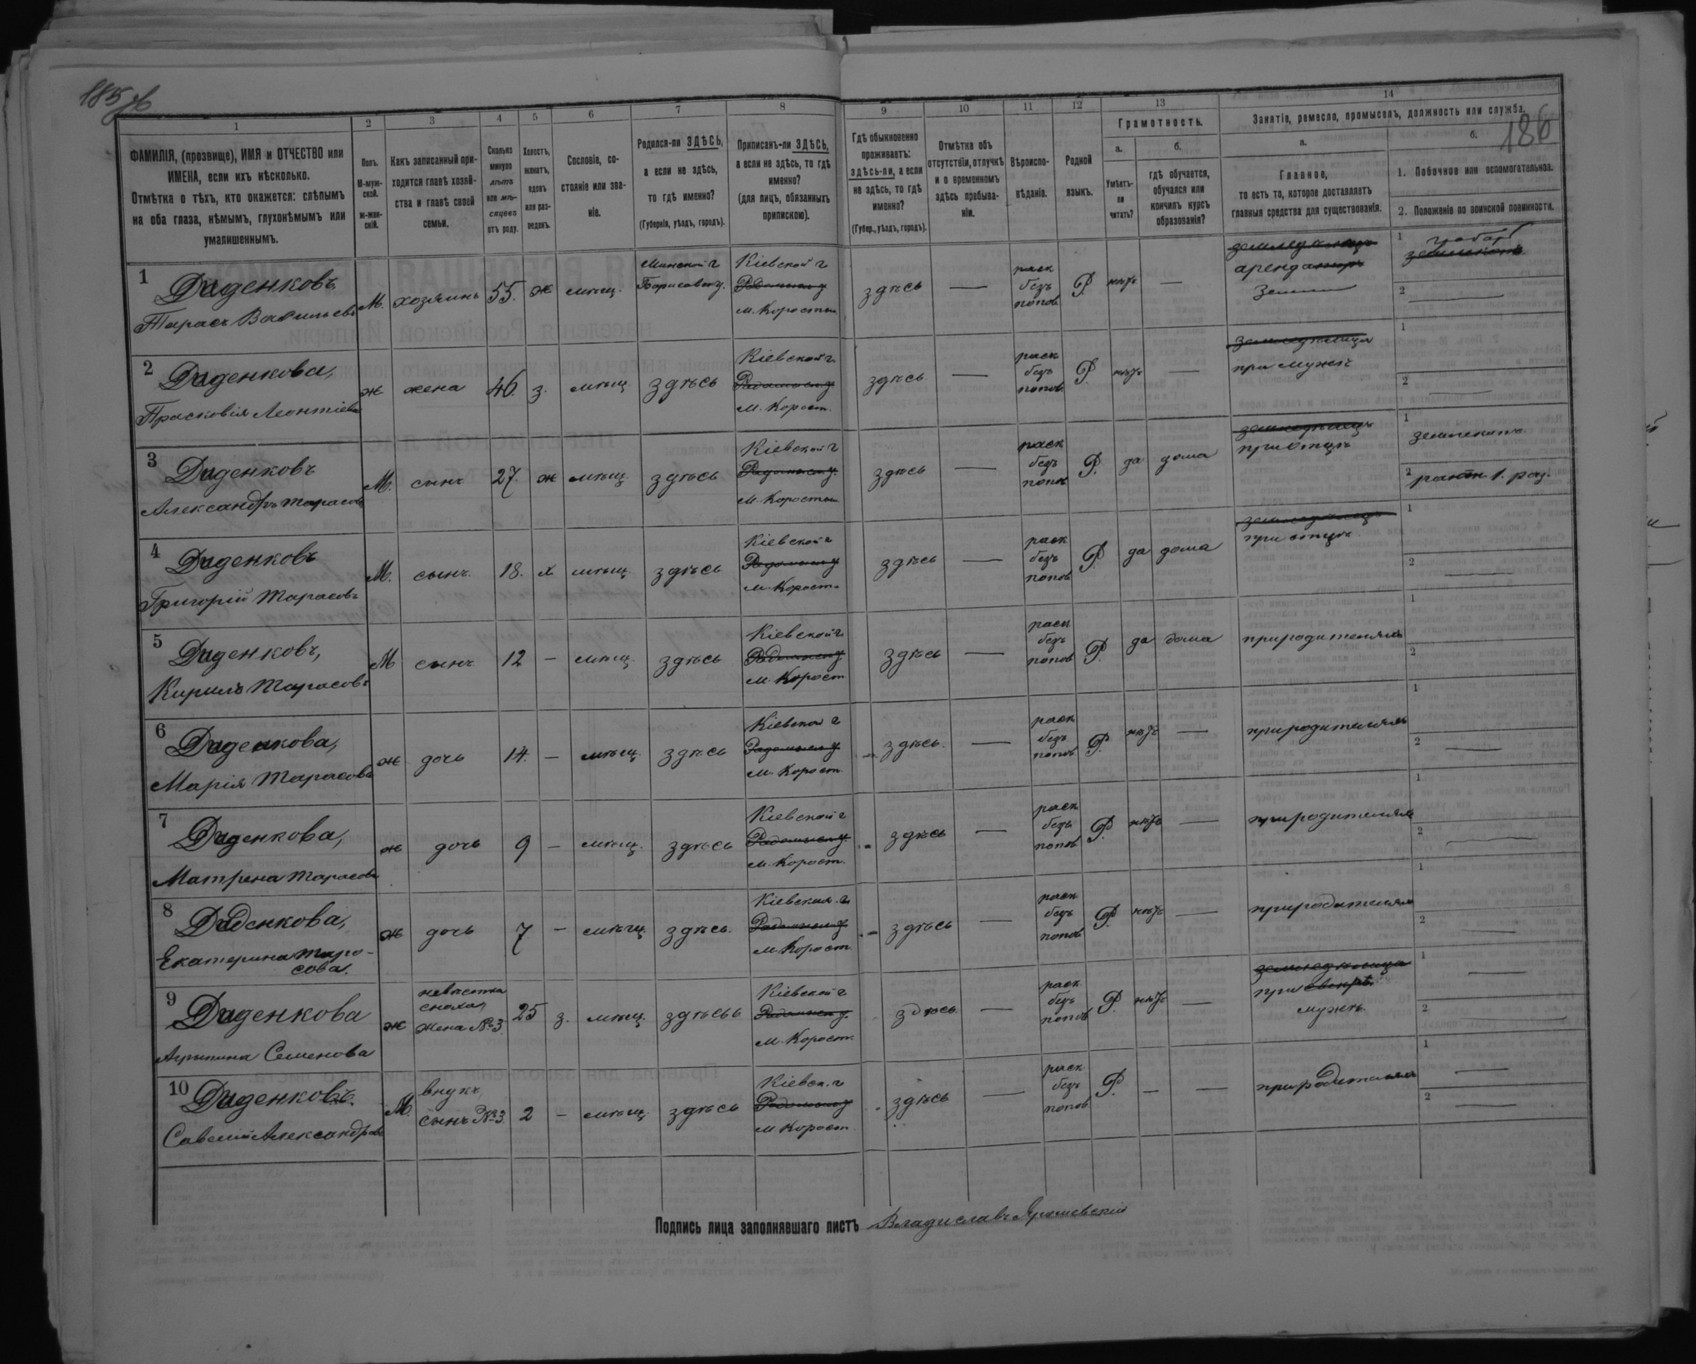 185 об
186
1
2
3
4
5
6
7
8
9
10
11
12
13
14
ФАМИЛІЯ, (прозвище), ИМЯ и ОТЧЕСТВО или
ИМЕНА, если ихъ нѣсколько.
Отмѣтка о тѣхъ, кто окажется: слѣпымъ
на оба глаза, нѣмымъ, глухонѣмымъ или
умалишеннымъ.
Полъ.
М-муж-
ской.
ж-жен-
скій.
Какъ записанный при-
ходится главѣ хозяй-
ства и главѣ своей
семьи.
Сколько
минуло
лѣтъ
или мѣ-
сяцевъ
отъ роду.
Холостъ,
женатъ,
вдовъ
или раз-
веденъ.
Сословіе, со-
стояніе или зва-
ніе.
Родился-ли ЗДѢСЬ,
а если не здѣсь,
то гдѣ именно?
(Губернія, уѣздъ, городъ).
Приписанъ-ли ЗДѢСЬ,
а если не здѣсь, то гдѣ
именно?
(для лицъ, обязанныхъ
припискою).
Гдѣ обыкновенно
проживаетъ:
здѣсь-ли, а если
не здѣсь, то гдѣ
именно?
(Губер., уѣздъ, городъ).
Отмѣтка объ
отсутствіи, отлучкѣ
и о временномъ
здѣсь пребыва-
ніи.
Вѣроиспо-
вѣданіе.
Родной
языкъ.
Грамотность.
а.
Умѣетъ-
ли
читать?
б.
гдѣ обучается,
обучался или
кончилъ курсъ
образованія?
Занятіе, ремесло, промыселъ, должность или служба.
а.
Главное,
то есть то, которое доставляетъ
главныя средства для существованія.
б.
1. Побочное или вспомогательное.
2. Положеніе по воинской повинности.
1 Диденковъ
Тарасъ Васильевъ
М. хозяинъ 55. ж мѣщ.
Минской г
Борисовск у.
Кіевской г
Радомыск у
м. Коростын
здѣсь —
раск
безъ
попов
Р. нѣтъ —
земледѣлецъ
аренда
земли
1
2
2 Диденкова,
Прасковія Леонтіева
ж жена 46. з. мѣщ здѣсь
Кіевской г.
Радомыск у
м. Корост.
здѣсь —
раск
безъ
попов
Р. нѣтъ —
земледѣлица
при мужѣ
1
2
3 Диденковъ
Александръ Тарасов
М. сынъ 27. ж мѣщ. здѣсь
Кіевской г
Радомыск у
м. Коростын
здѣсь —
раск
безъ
попов
Р. да дома
земледѣлецъ
при отцѣ
1
2 ратн 1. раз.
4 Диденковъ
Григорій Тарасовъ
М. сынъ 18. х мѣщ здѣсь
Кіевской г
Радомыск у
м. Корост.
здѣсь —
раск
безъ
попов
Р. да дома
земледѣлецъ
при отцѣ
1
2
5 Диденковъ,
Кирилъ Тарасовъ
М сынъ 12 — мѣщ здѣсь
Кіевской г
Радомыск у
м. Корост
здѣсь —
раск
безъ
попов
Р. да дома
при родителяхъ
1
2
6 Диденкова,
Марія Тарасова
ж дочь 14. — мѣщ здѣсь
Кіевской г
Радомыск у
м. Корост.
здѣсь. —
раск
безъ
попов
Р. нѣтъ —
при родителяхъ
1
2
7 Диденкова,
Матрена Тарасова
ж дочь 9 — мѣщ. здѣсь
Кіевской г
Радомыск у
м. Корост.
здѣсь —
раск
безъ
попов
Р. нѣтъ —
при родителяхъ
1
2
8 Диденкова,
Екатерина Тара-
сова.
ж дочь 7 — мѣщ здѣсь.
Кіевская. г
Радомыск у
м. Корост
здѣсь —
раск
безъ
попов
Р. нѣтъ —
при родителяхъ
1
2
9 Диденкова
Агрипина Семенова
ж
невѣстка
сноха,
жена №3
25 з. мѣщ здѣсь
Кіевской г
Радомыск у.
м. Корост.
здѣсь. —
раск
безъ
попов
Р. нѣтъ —
земледѣлица
при свекрѣ.
мужѣ
1
2
10 Диденковъ.
Савелій Александров
М
внукъ,
сынъ №3.
2 — мѣщ. здѣсь
Кіевск. г
Радомыск у
м. Корост
здѣсь —
раск
безъ
попов.
Р. — —
при родителяхъ
1
2
Подпись лица заполнявшаго листъ Владиславъ Ярошевскій